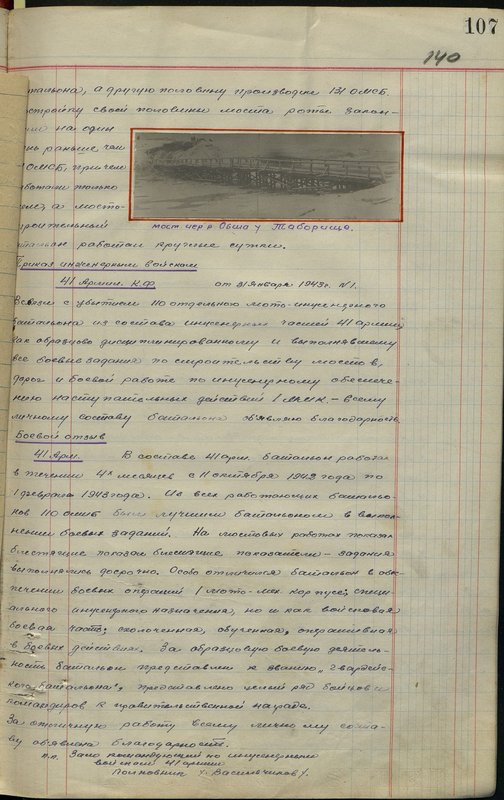 107
140
тальона, а другую половину производил 131 ОМСБ.
стройку своей половины моста роты закон-
на один
нь раньше, чем
ОМСБ, причем
ботали только
а мосто-
роительный
мост чер. р. Обша у Таборища.
батальон работал круглые сутки.
Приказ инженерным войскам
41 Армии К.Ф. от 31 января 1943г. №1.
В связи с убытием 110 отдельного мото-инженерного
батальона из состава инженерных частей 41 армии,
как образцово дисциплинированному и выполнявшему
все боевые задания по строительству мостов,
дорог и боевой работе по инженерному обеспече-
нию наступательных действий 1 МКК. – всему
личному составу батальона объявляю благодарность.
Боевой отзыв
41 Арм. В составе 41 арм. батальон работал
в течении 4х месяцев с 11 октября 1942 года по
1 февраля 1943 года. Из всех работающих батальо-
нов 110 омиб был лучшим батальоном в выпол-
нении боевых заданий. На мостовых работах показал
блестящие показал блестящие показатели – задания
выполнялись досрочно. Особо отличился батальон в обес-
печении боевых операций 1 мото-мех корпуса; специ-
ального инженерного назначения, но и как войсковая
боевая часть; сколоченная, обученная, оперативная
в боевых действиях. За образцовую боевую деятель-
ность батальон представлен к званию „Гвардейс-
кого батальона", представлено целый ряд бойцов и
командиров к правительственной награде.
За отличную работу всему личному соста-
ву объявлена благодарность.
п.п. Зам. командующего по инженерным
войскам 41 армии
Полковник /Васильчиков/.